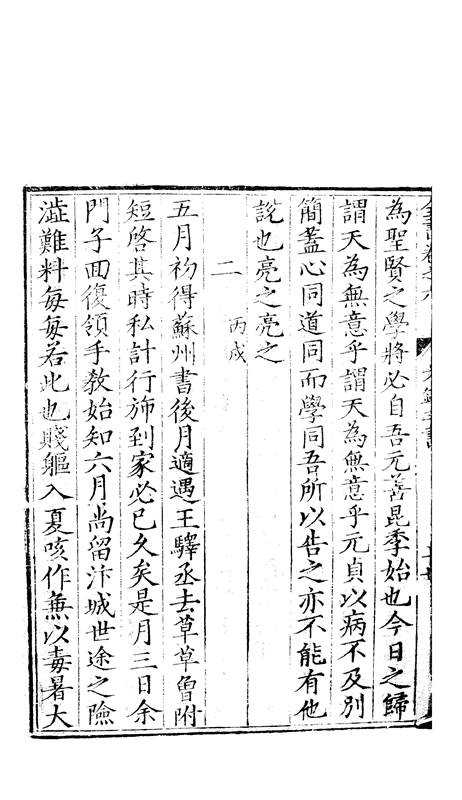 為聖賢之學將必自吾元善昆季始也今日之歸
謂天為無意乎謂天為無意乎元貞以病不及別
簡葢心同道同而學同吾所以告之亦不能有他
說也亮之亮之
二 丙戌
五月初得蘇州書後月適遇王驛丞去草草曾附
短啓其時私計行斾到家必已久矣是月三日余
門子囬復領手敎始知六月尚留汴城世途之險
澁難料每每若此也賤軀入夏咳作兼以毒暑大